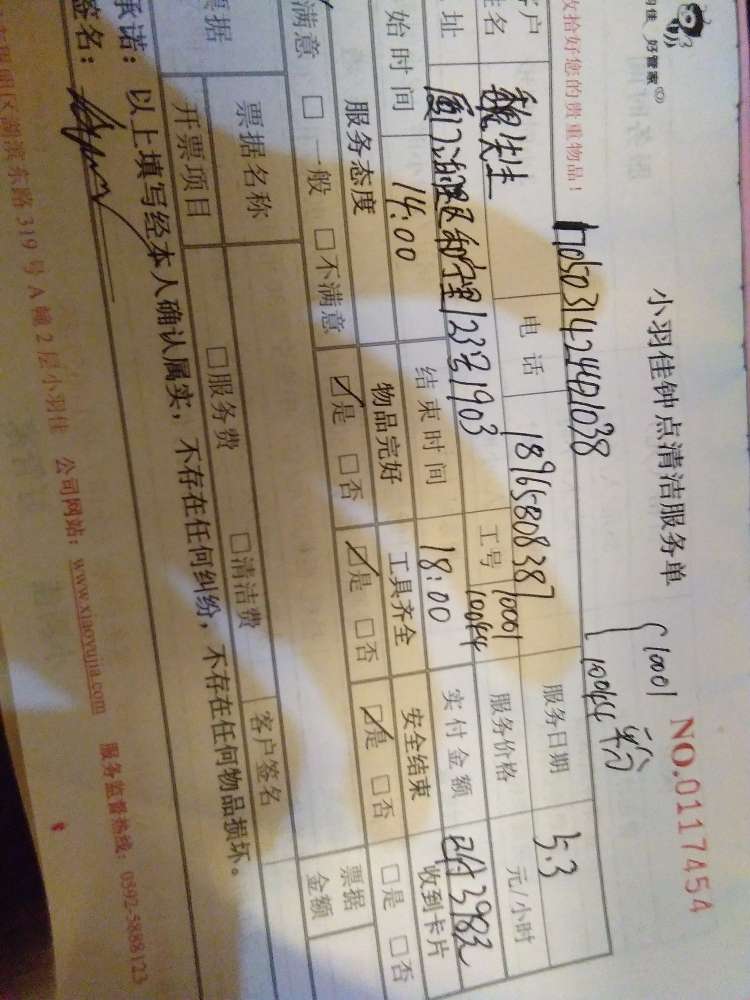 羽佳 好管家
小羽佳钟点清洁服务单
NO.0117454
收拾好您的贵重物品！
170503142441028
10001
10044
客户姓名 魏先生 电话 18965808387 服务日期 5.3
址 厦门湖里区和宁里123号1903 工号 10001 10044 服务价格 元/小时
始时间 14:00 结束时间 18:00 实付金额 已付398元
服务态度 物品完好 工具齐全 安全结束 收到卡片
满意 □一般 □不满意 ☑是 □否 ☑是 □否 ☑是 □否 □是 □否
票据 票据名称 客户签名 票据金额
开票项目 □服务费 □清洁费
承诺：以上填写经本人确认属实，不存在任何纠纷，不存在任何物品损坏。
签名：
明区湖滨东路319号A幢2层小羽佳 公司网站：www.xiaoyujia.com 服务监督热线：0592-5888123